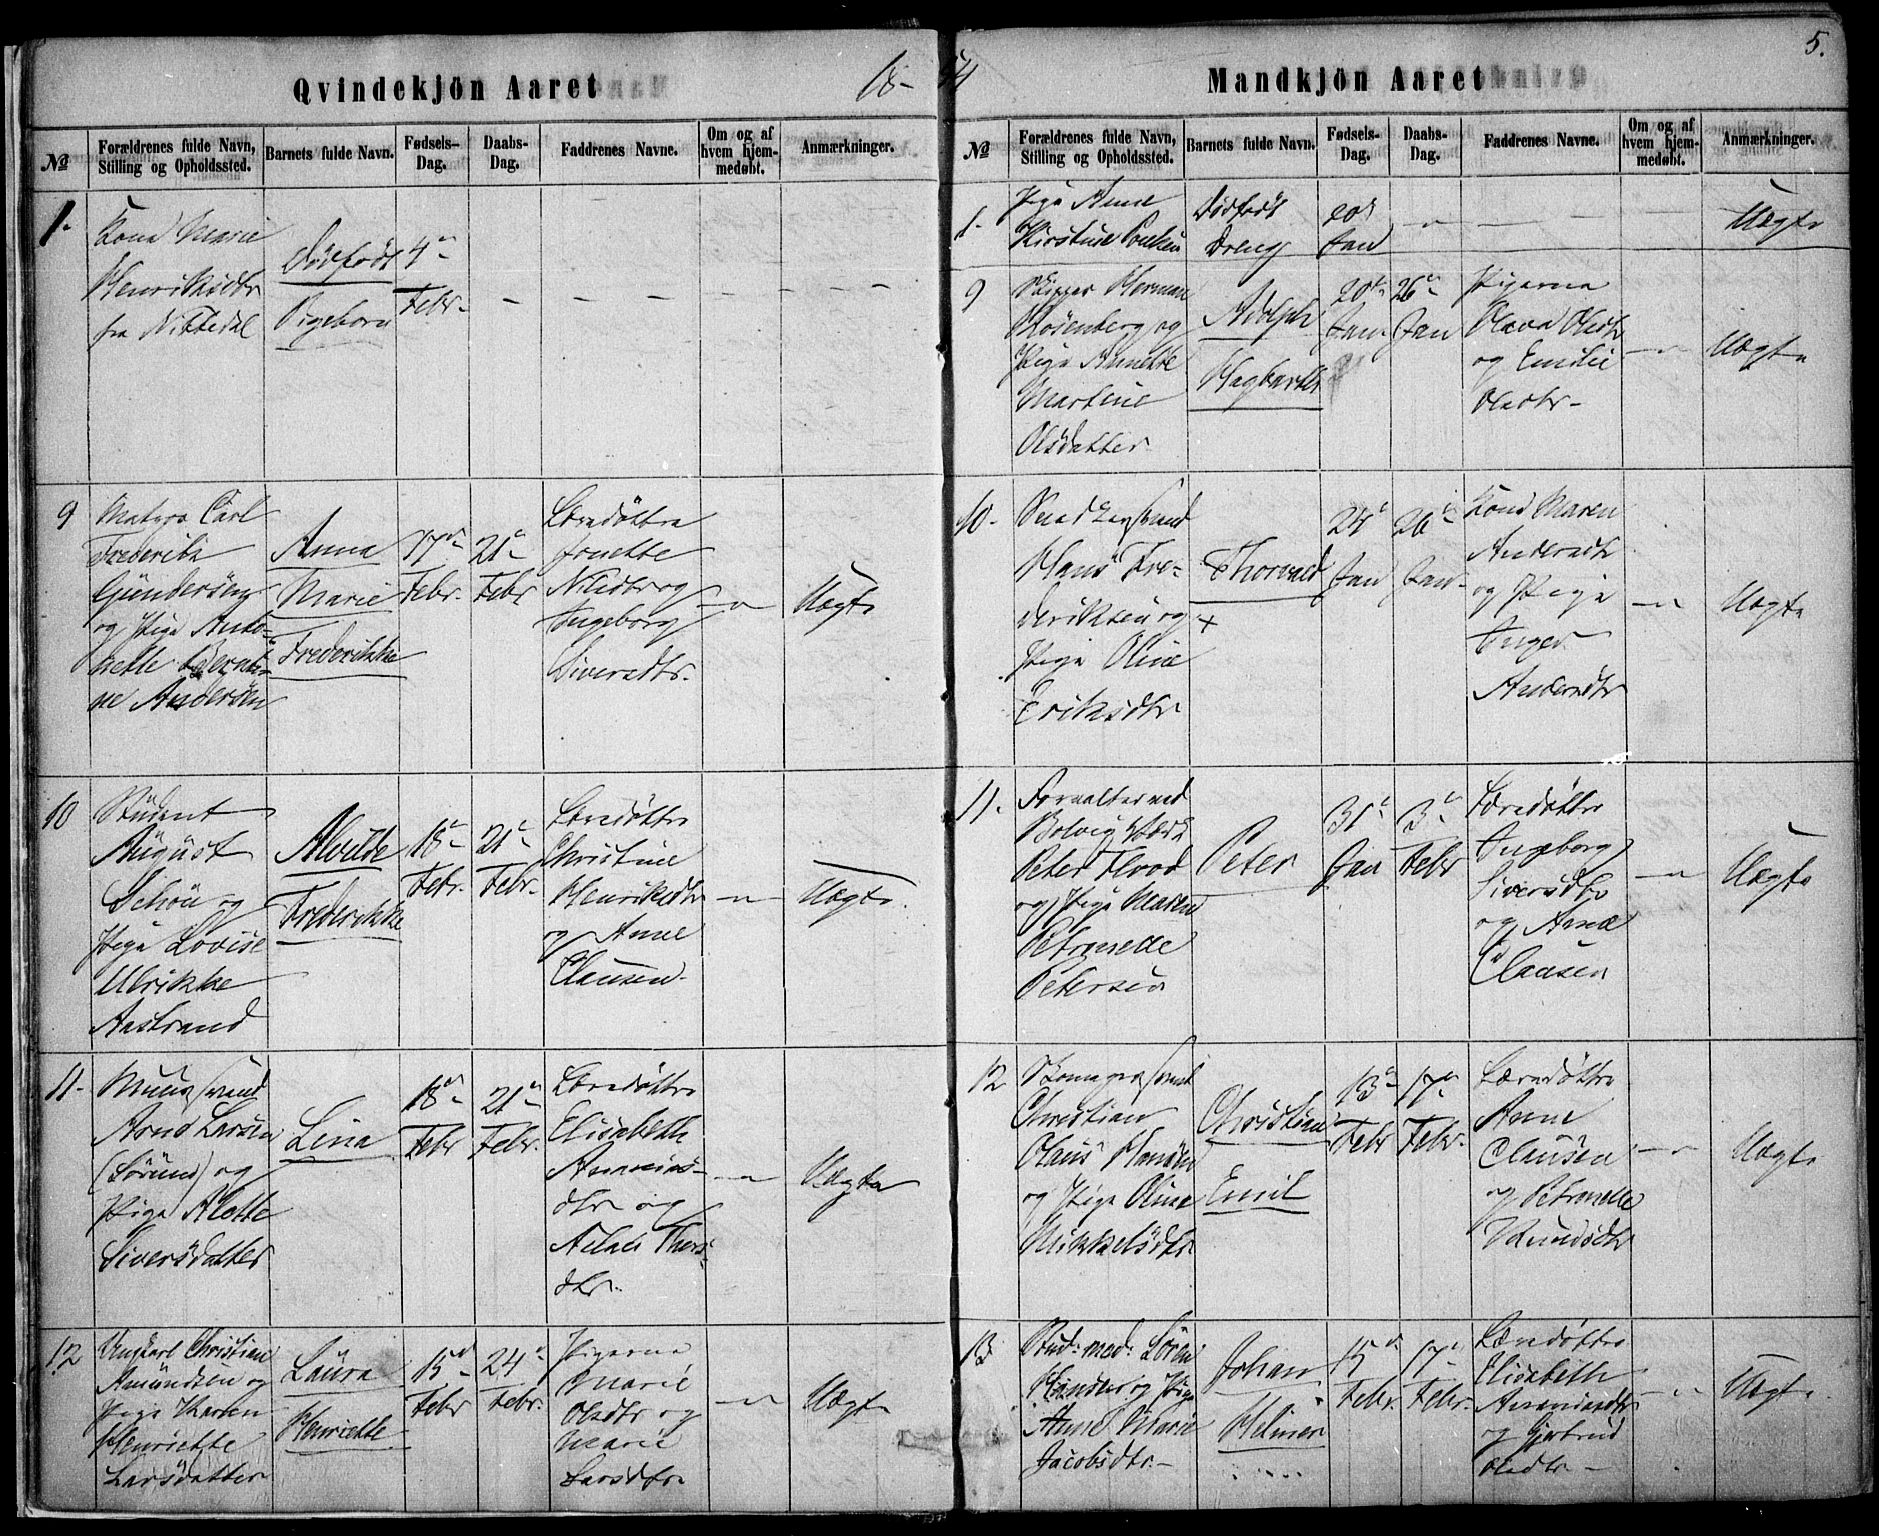 5.
Qvindekjön Aaret
18-54
Mandkjön Aaret
No
Forældrenes fulde Navn,
Stilling og Opholdssted.
Barnets fulde Navn.
Fødsels-
Dag.
Daabs-
Dag.
Faddrenes Navne.
Om og af
hvem hjem-
medøbt.
Anmærkninger.
1.
Kone Marie
Henriksdtr
fra Nittedal
Dødfødt
Pigebarn
4de
Febr.
9
Matros Carl
Frederik
Gündersen
og Pige Anto-
nette Bernti-
ne Andersen
Anna
Marie
Frederikke
17de
Febr.
21de
Febr.
Læredøttre
Jonette
Nilsdtr og
Ingeborg
Siversdtr.
Uægte
10
Stüdent
Aügüst
Schöu og
Pige Lovise
Ulrikke
Aastrand
Alvilde
Frederikke
18de
Febr.
21de
Febr.
Læredøttre
Christine
Henriksdtr
og Anne
Claüsen.
Uægte.
11.
Muursvend
Arnt Larsen
(Sørum) og
Pige Alette
Siversdatter
Lina
18de
Febr
21de
Febr.
Læredøttre
Elisabeth
Ananias-
dtr og
Thors
dtr.
Uægte
12
Ungkarl Christian
Amündsen og
Pige Karen
Henriette
Larsdatter
Laüra
Henriette
15de
Febr
24de
Febr.
Pigerne
Marie
Olsdtr og
Marie
Larsdtr
Uægte
No
Forældrenes fulde Navn,
Stilling og Opholdssted.
Barnets fulde Navn.
Fødsels-
Dag.
Daabs-
Dag.
Faddrenes Navne.
Om og af
hvem hjem-
medøbt.
Anmærkninger.
1.
Pige Anne
Kirstine
Dødfødt
Dreng
20de
Jan
Uægte
9
Skipper Herman
Rosenberg og
Pige Annette
Martine
Olsdatter
Adolph
Hagbarth
20de
Jan
26de
Jan
Pigerne
Olava Olsdtr
og Emilie
Olsdtr-
Uægte
10.
Snedkersvend
Hans Fre-
deriksen og
Pige Oline
Eriksdtr
Thorvald
+
24de
Jan
26de
Jan.
Kone Maren
Andersdtr
og Pige
Inger
Andersdtr
Uægte
11.
Forvalter ved
Bolvig Værk
Peter Flood
og Pige Maren
Petronelle
Petersen
Peter
31de
Jan
3de
Febr
Læredøttre
Ingeborg
Siversdtr
og Anne
Clausen
Uægte
12
Skomagersvend
Christian
Olaüs Hansen
og Pige Oline
Mikkelsdtr
Christian
Emil
13de
Febr
17de
Febr.
Læredøttre
Anne
Claüsen
og Petronelle
Knudsdtr
Uægte
13
Stud. med. Sören
Hansen og Pige
Anne Marie
Jacobsdtr.
Johan
Helmer
15de
Febr.
17de
Febr.
Læredøttre
Elisabeth
Ananiasdtr
og Gjertrud
Olsdtr.
Uægte